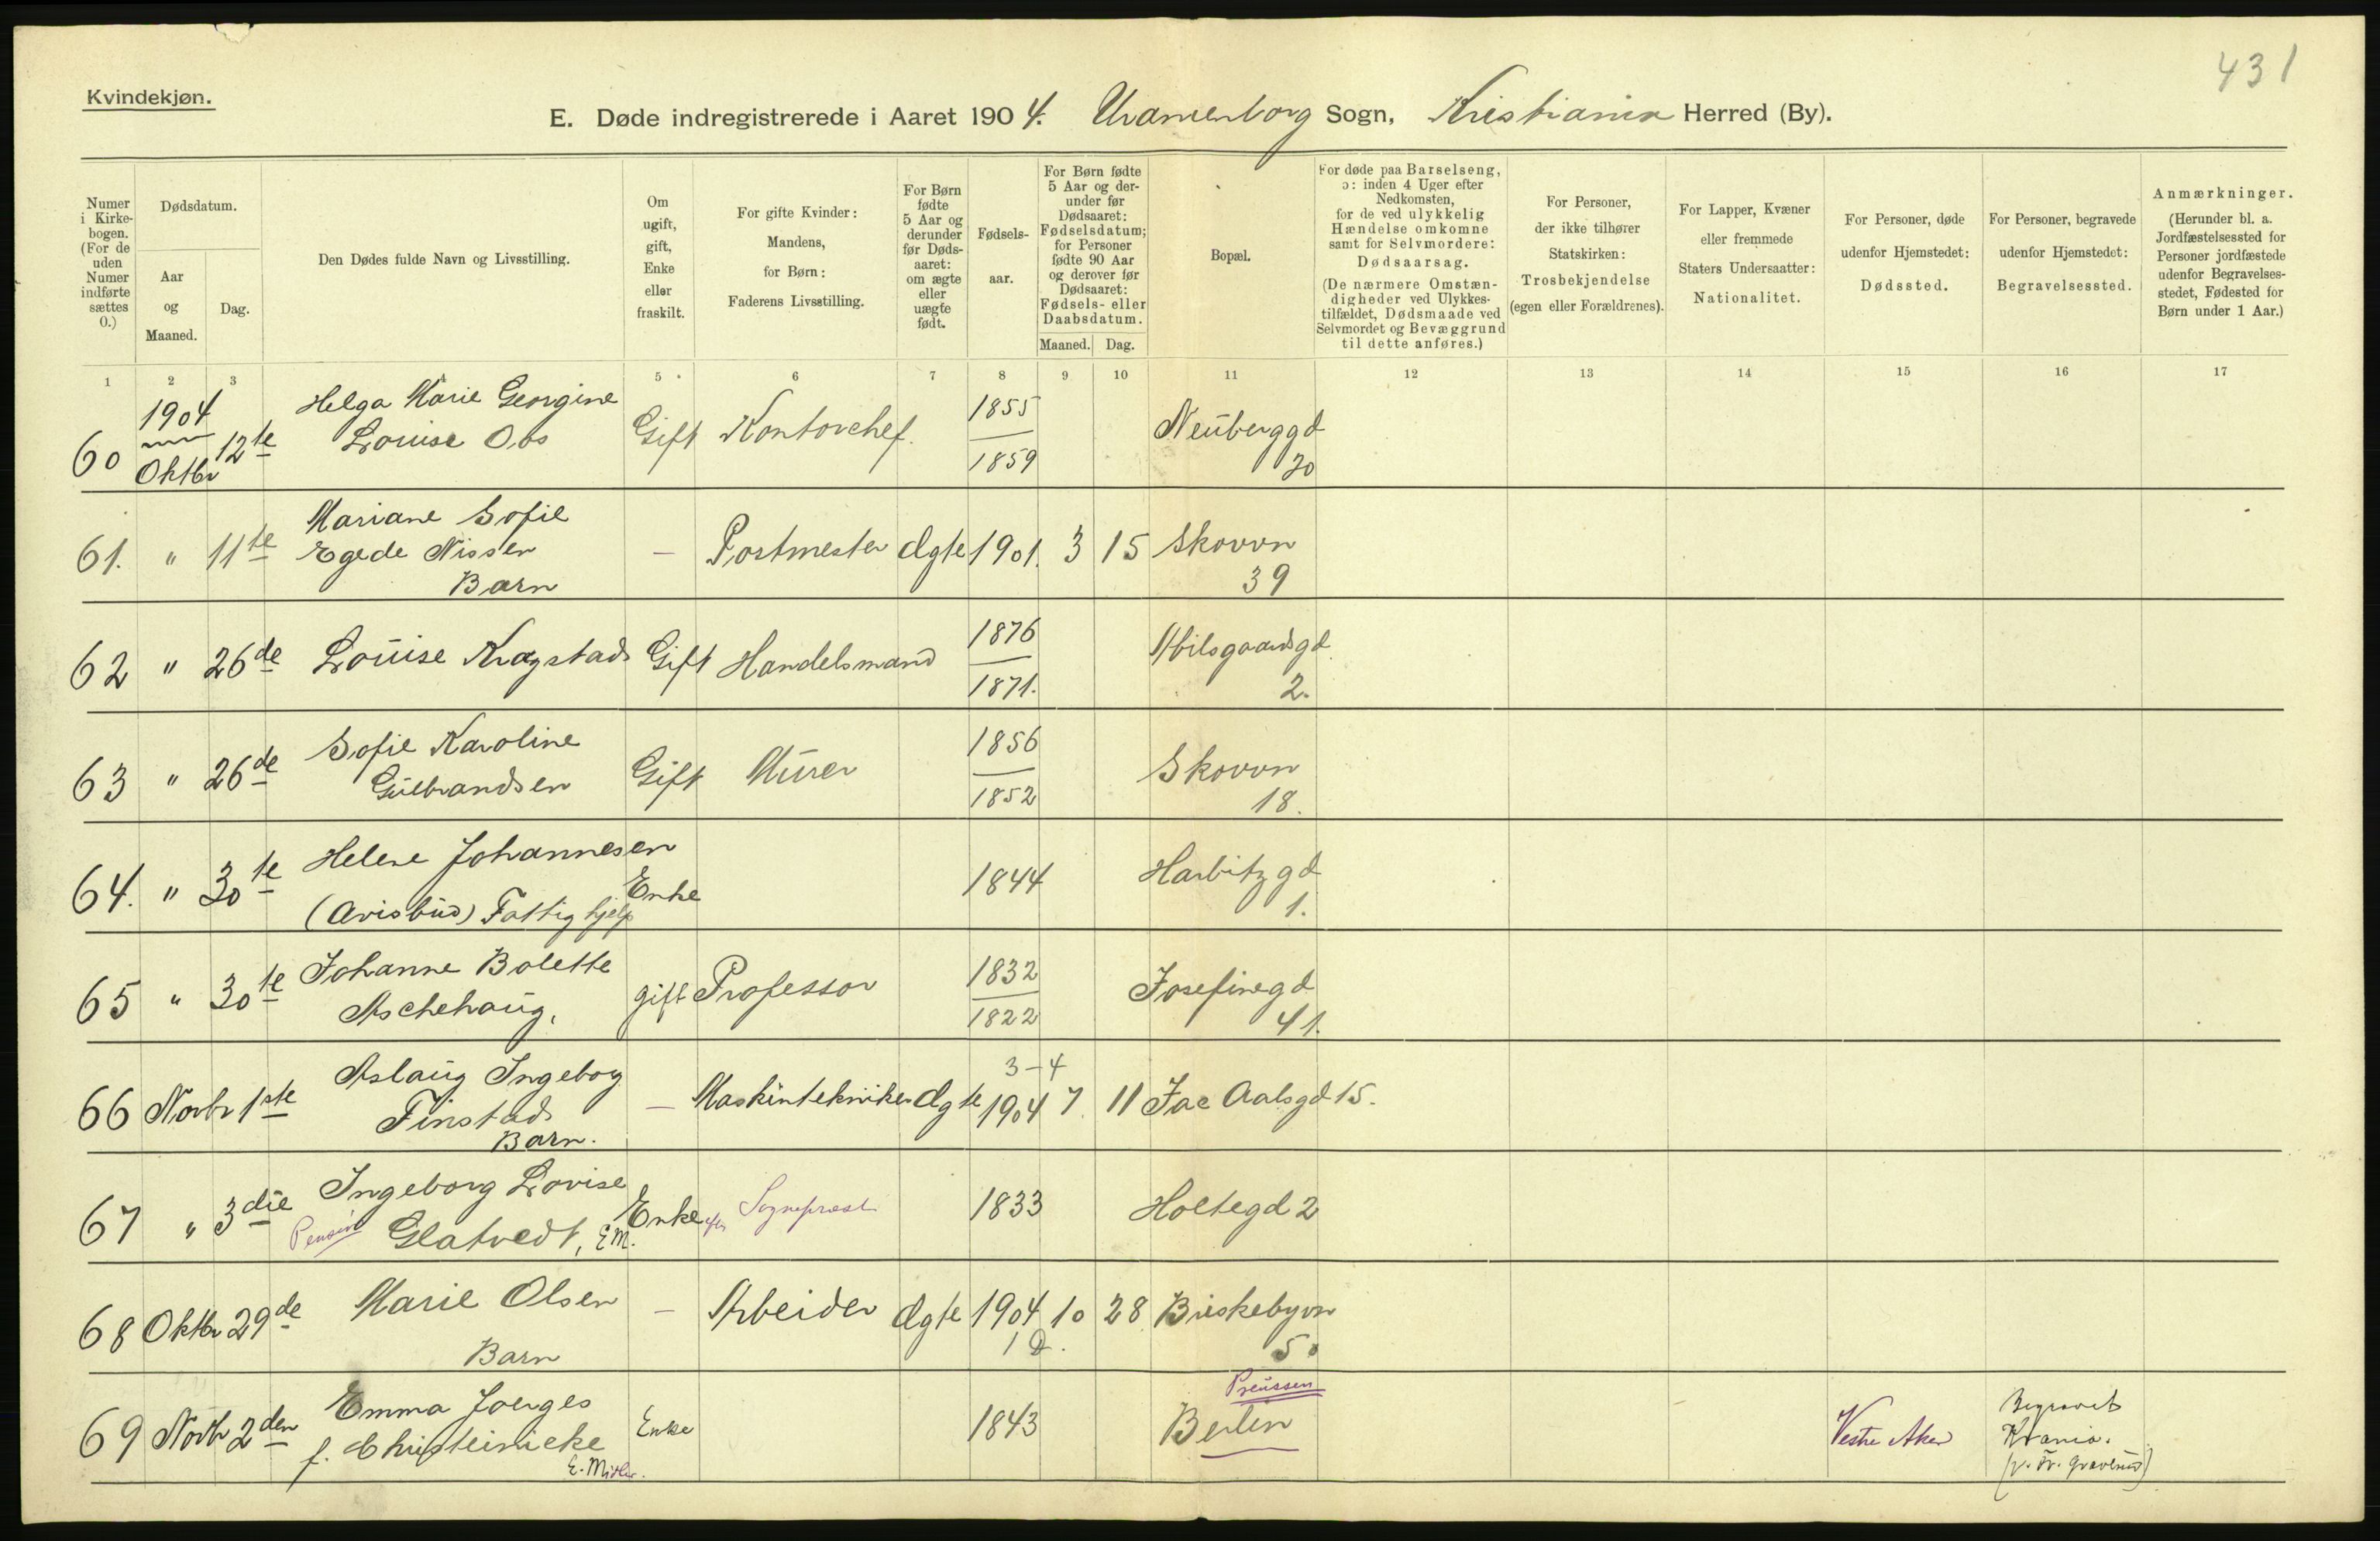 431
Kvindekjøn.
E. Døde indregistrerede i Aaret 1904. Uranienborg Sogn, Kristiania Herred (By).
Numer i Kirkebogen. (For de uden Numer indførte sættes 0.)
Dødsdatum.
Aar og Maaned.
Dag.
Den Dødes fulde Navn og Livsstilling.
Om ugift, gift, Enke eller fraskilt.
For gifte Kvinder: Mandens, for Børn: Faderens Livsstilling.
For Børn fødte 5 Aar og derunder før Dødsaaret: om ægte eller uægte født.
Fødselsaar.
For Børn fødte 5 Aar og derunder før Dødsaaret: Fødselsdatum; for Personer fødte 90 Aar og derover før Dødsaaret: Fødsels- eller Daabsdatum.
Maaned. Dag.
Bopæl.
For døde paa Barselseng, ɔ: inden 4 Uger efter Nedkomsten, for de ved ulykkelig Hændelse omkomne samt for Selvmordere: Dødsaarsag.
(De nærmere Omstændigheder ved Ulykkestilfældet, Dødsmaade ved Selvmordet og Bevæggrund til dette anføres.)
For Personer, der ikke tilhører Statskirken: Trosbekjendelse (egen eller Forældrenes).
For Lapper, Kvæner eller fremmede Staters Undersaatter: Nationalitet.
For Personer, døde udenfor Hjemstedet: Dødssted.
For Personer, begravede udenfor Hjemstedet: Begravelsessted.
Anmærkninger.
(Herunder bl. a. Jordfæstelsessted for Personer jordfæstede udenfor Begravelsesstedet, Fødested for Børn under 1 Aar.)
1 2 3 5 6 7 8 9 10 11 12 13 14 15 16 17
60 1904 Oktbr 12te Helga Marie Georgine Louise Obs Gift Kontorchef. 1855 1859 Neuberggd 30
61. " 11te Mariane Sofie Egede Nissen Barn — Postmester ægte 1901. 3 15 Skovvn 39
62 " 26de Louise Kragstad Gift Handelsmand 1876 1871. Abilsgaardsgd 2.
63 " 26de Sofie Karoline Gulbrandsen Gift Murer 1856 1852 Skovvn 18.
64. " 30te Helene Johannesen (Avisbud) Fattighjelp Enke 1844 Harbitzgd 1.
65 " 30te Johanne Bolette Aschehoug, gift Professor 1832 1822 Josefinegd 41.
66 Novbr 1ste Aslaug Ingebog Finstad Barn. — Maskintekniker ægte 3-4 1904 7. 11 Jac Aalsgd 15.
67 " 3die Ingeborg Lovise Glatvedt, E.M. Pension Enke efter Sogneprest 1833 Holtegd 2
68 Oktbr 29de Marie Olsen Barn — Arbeider ægte 1904 1 D. 10 28 Briskebyvn 50
69 Novbr 2den Emma Joerges f. Christeinicke E. Midler. Enke 1843 Preussen Berlin Vestre Aker Begravet Krania. (v. Fr. gravlund)